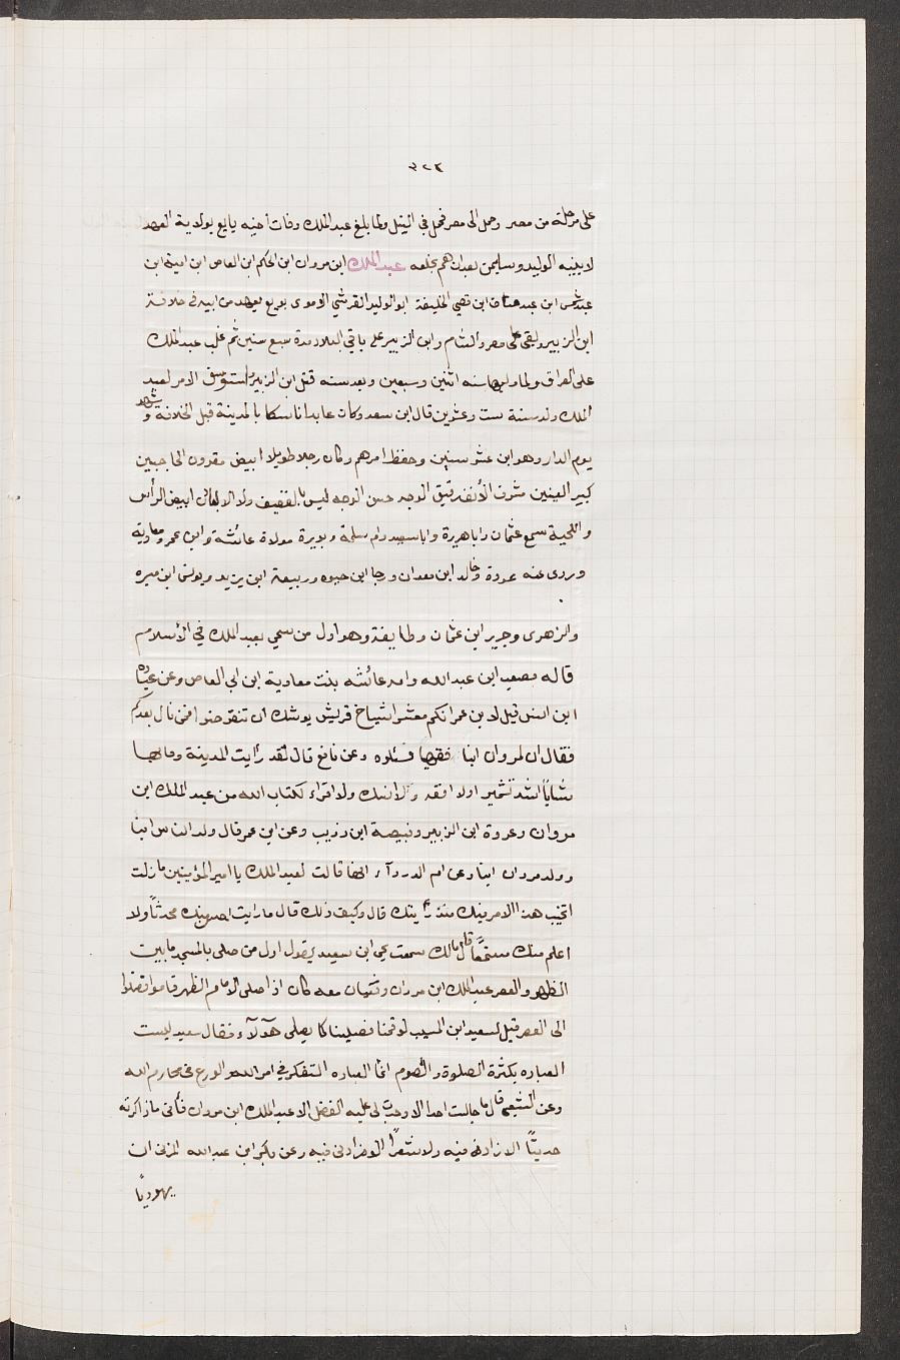 على مرحلة من مصر وحمل الى مصر فحمل في النيل ولما بلغ عبدالملك وفات اخيه بايع بولاية العهد
لابنيه الوليد وسليمن بعدان هم بخلعه عبدالملك ابن مروان ابن الحكم ابن العاص ابن امية ابن
عبدشمس ابن عبدمناف ابن قصي الخليفة ابوالوليد القرشي الاموى بويع بعهد من ابيه في خلافة
ابن الزبير وبقى على مصر والشام وابن الزبير على باقي البلاد مدة سبع سنين ثم غلب عبدالملك
على العراق وما والها سنه اثنين وسبعين وبعد سنه قتل ابن الزبير واستوسق الامر لعبد
الملك ولد سنة ست وعشرين قال ابن سعد وكان عابدا ناسكا بالمدينة قبل الخلافة وشهد
يوم الدار وهو ابن عشر سنين وحفظ امرهم وكان رجلا طويلا ابيض مقرون الحاجبين
كبير العينين مشرف الأنف رقيق الوجه حسن الوجه ليس بالقضيف ولا البادن ابيض الرأس
واللحية سمع عثمان واباهريرة واباسعيد وام سلمة وبريرة مولاة عائشة وابن عمر ومعاوية
وروى عنه عروة وخالد ابن معدان ورجا ابن حيوه وربيعة ابن يزيد ويونس ابن ميسره
والزهرى وجرير ابن عثمان وطايفة وهو اول من سمي بعبد الملك في الأسلام
قاله مصعب ابن عبدالله وامه عائشه بنت معاوية ابن ابى العاص وعن عبادة
ابن انس قيل لابن عمر انكم معشر اشياخ قريش يوشك ان تنقرضوا فمن نسال بعدكم
فقال ان لمروان ابنا فقيها فسئلوه وعن نافع قال لقد رأيت المدينة وما بها
شاباً اشد تشمير اولا افقه ولاانسك ولا اقراء لكتاب الله من عبدالملك ابن
مروان وعروة ابن الزبير وقبيصة ابن ذؤيب وعن ابن عمر قال ولد الناس ابنا
وولد مروان ابا وعن ام الدردآء انها قالت لعبدالملك يا امير المؤمنين ما زلت
اتخيب هذا الامر فيك منذ رأيتك قال وكيف ذلك قال ما رايت احسن منك محدثاً ولا
اعلم منك مستمعاً قال مالك سمعت يحيى ابن سعيد يقول اول من صلى بالمسجد مابين
الظهر والعصر عبدالملك ابن مروان وفتيان معه كان اذا صلى الامام الظهر قاموا فصلوا
الى العصر قيل لسعيد ابن المسيب لو قمنا فصلينا كما يصلى هآلآء فقال سعيد ليست
العباده بكثرة الصلوة والصوم انما العباده التفكر في امر الله والورع عن محارم الله
وعن الشعبي قال ما جالست احدا الا وجدت لى عليه الفضل الا عبدالملك ابن مروان فأنى ما ذاكرته
حديثاً الا زادنى فيه ولا شعراً الا وزادنى فيه وعن بكر ابن عبدالله المزنى ان
يهودياً